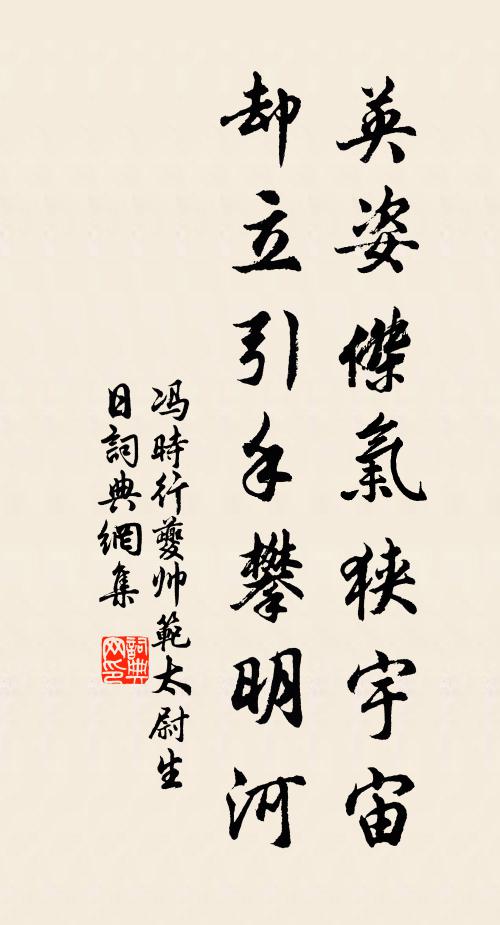 英姿傑氣狹宇宙
却立引手攀明河
冯時行夔帅範太尉生
日詞典網集
詞典
网印